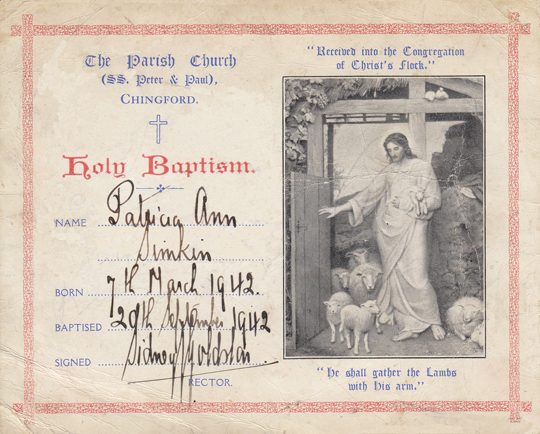 The Parish Church
(SS. Peter & Paul),
CHINGFORD.
Holy Baptism.
NAME Patricia Ann
Simkin
BORN 7th March 1942.
BAPTISED 29th September 1942
SIGNED Sidney Goldston
RECTOR.
"Received into the Congregation
of Christ's Flock."
"He shall gather the Lambs
with his arm."